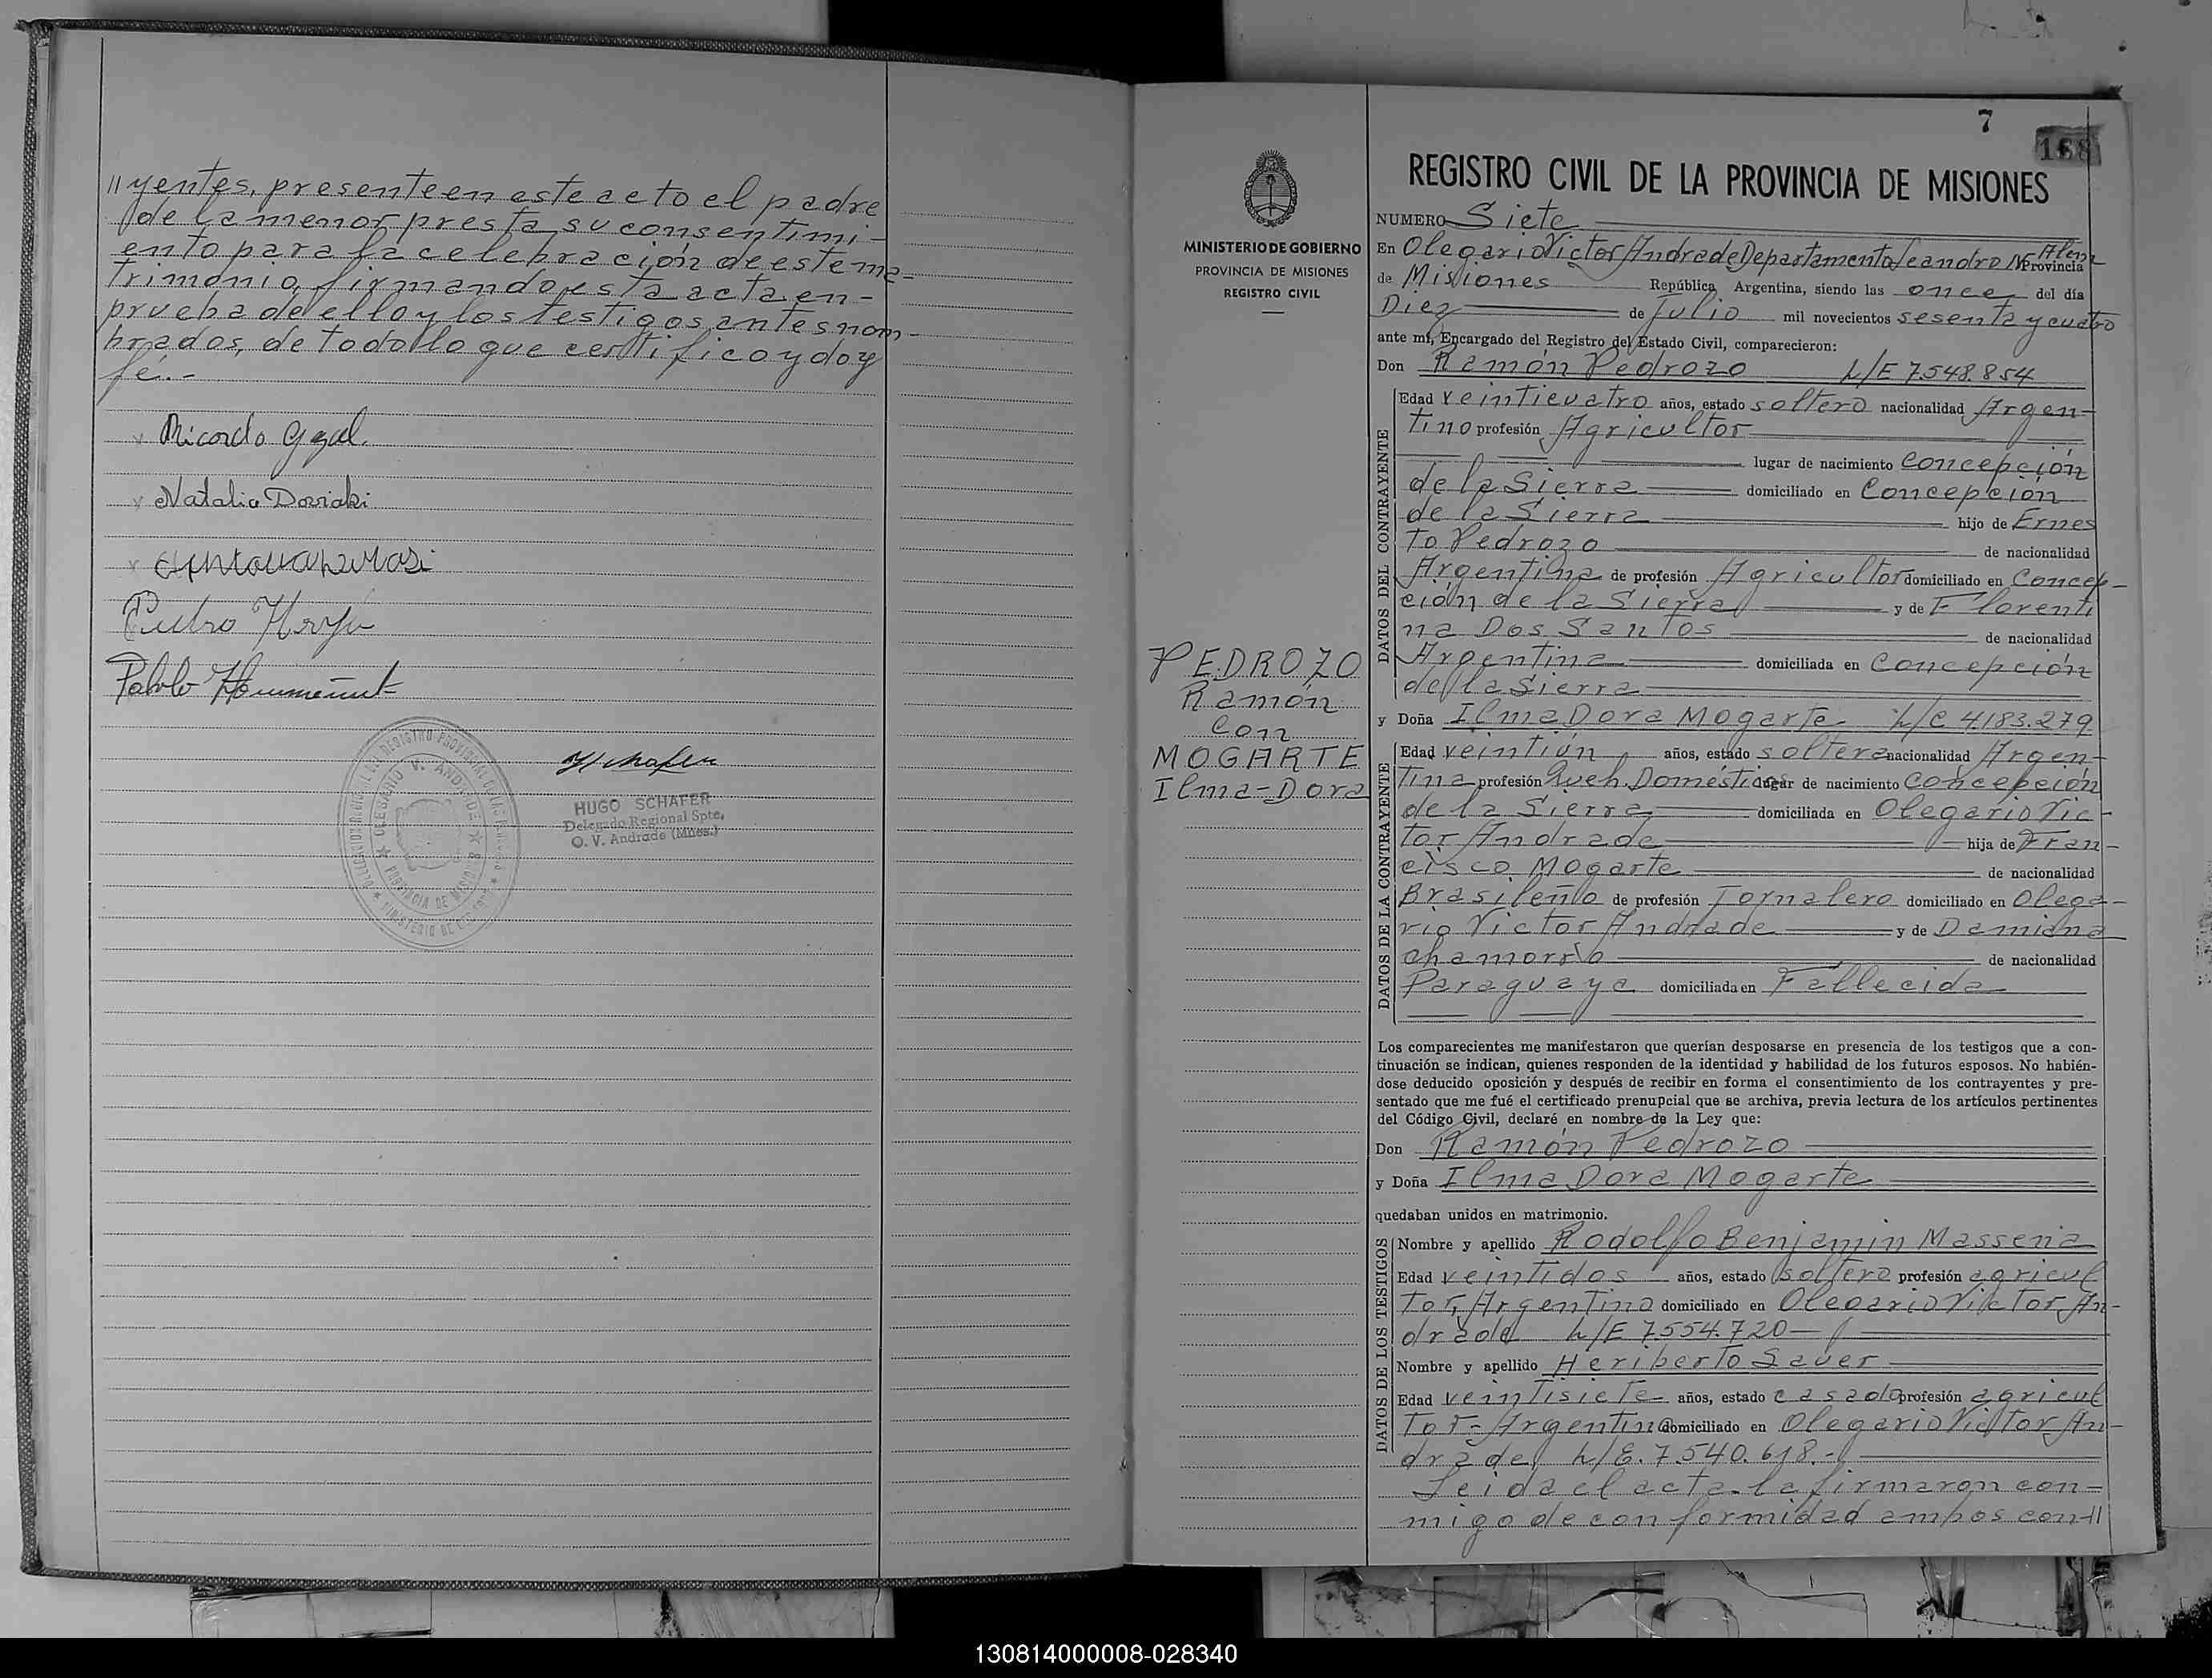 // yentes, presente en este acto el padre
de la menor presta su consentimi-
ento para la celebración de este ma-
trimonio, firmando esta acta en-
prueba de ello y los testigos antes nom-
brados, de todo lo que certifico y doy
fé.-
x Ricardo
x Natalia Doviaki
x
Pedro
Pablo
HUGO SCHAFER
Delegado Regional Spte.
O. V. Andrade (Mnes.)
7
168
MINISTERIO DE GOBIERNO
PROVINCIA DE MISIONES
REGISTRO CIVIL
PEDROZO
Ramón
Con
MOGARTE
Ilma-Dora
REGISTRO CIVIL DE LA PROVINCIA DE MISIONES
NUMERO Siete
En Olegario Victor Andrade Departamento Leandro N. Alem Provincia
de Misiones República Argentina, siendo las once del día
Diez de Julio mil novecientos sesenta y cuatro
ante mí, Encargado del Registro del Estado Civil, comparecieron:
Don Ramón Pedrozo L/E 7.548.854
DATOS DEL CONTRAYENTE
Edad veinticuatro años, estado soltero nacionalidad Argen-
tino profesión Agricultor
lugar de nacimiento Concepción
de la Sierra domiciliado en Concepción
de la Sierra hijo de Ernes
to Pedrozo de nacionalidad
Argentina de profesión Agricultor domiciliado en Concep-
ción de la Sierra y de Florenti
na Dos Santos de nacionalidad
Argentina domiciliada en Concepción
de la Sierra
y Doña Ilma Dora Mogarte L/C 4.183.279
DATOS DE LA CONTRAYENTE
Edad veintiún años, estado soltera nacionalidad Argen-
tina profesión Queh. Domésticos lugar de nacimiento Concepción
de la Sierra domiciliada en Olegario Vic-
tor Andrade hija de Fran-
cisco Mogarte de nacionalidad
Brasileño de profesión Jornalero domiciliado en Olega-
rio Victor Andrade y de Damiana
chamorro de nacionalidad
Paraguaya domiciliada en Fallecida
Los comparecientes me manifestaron que querían desposarse en presencia de los testigos que a con-
tinuación se indican, quienes responden de la identidad y habilidad de los futuros esposos. No habién-
dose deducido oposición y después de recibir en forma el consentimiento de los contrayentes y pre-
sentado que me fué el certificado prenupcial que se archiva, previa lectura de los artículos pertinentes
del Código Civil, declaré en nombre de la Ley que:
Don Ramón Pedrozo
y Doña Ilma Dora Mogarte
quedaban unidos en matrimonio.
DATOS DE LOS TESTIGOS
Nombre y apellido Rodolfo Benjamin Massena
Edad veintidos años, estado soltero profesión agricul
tor, Argentino domiciliado en Olegario Victor An-
drade L/E 7.554.720
Nombre y apellido Heriberto Sauer
Edad veintisiete años, estado casado profesión agricul
tor-Argentino domiciliado en Olegario Victor An-
drade L/E. 7.540.618.-
Leida el acta la firmaron con-
migo de conformidad ambos con-//
130814000008-028340